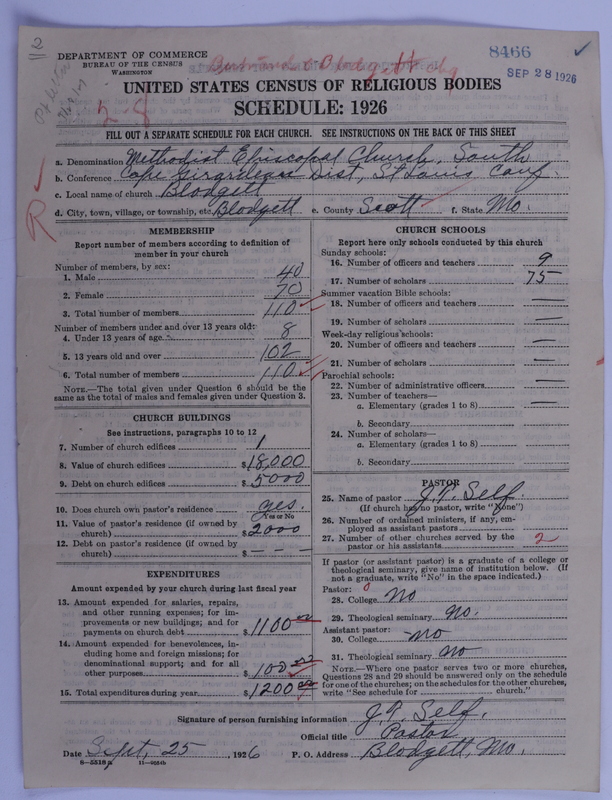 2
DEPARTMENT OF COMMERCE
BUREAU OF THE CENSUS
WASHINGTON
8466
SEP 28 1926
UNITED STATES CENSUS OF RELIGIOUS BODIES
SCHEDULE: 1926
FILL OUT A SEPARATE SCHEDULE FOR EACH CHURCH. SEE INSTRUCTIONS ON THE BACK OF THIS SHEET
a. Denomination Methodist Episcopal Church, South
b. Conference Cape Girardeau Dist, St Louis Conf.
c. Local name of church Blodgett
d. City, town, village, or township, etc. Blodgett e. County Scott f. State Mo.
R
MEMBERSHIP
Report number of members according to definition of
member in your church
Number of members, by sex:
1. Male 40
2. Female 70
3. Total number of members 110
Number of members under and over 13 years old:
4. Under 13 years of age 8
5. 13 years old and over 102
6. Total number of members 110
NOTE.—The total given under Question 6 should be the
same as the total of males and females given under Question 3.
CHURCH BUILDINGS
See instructions, paragraphs 10 to 12
7. Number of church edifices 1
8. Value of church edifices $18,000
9. Debt on church edifices $5000
10. Does church own pastor's residence yes.
Yes or No
11. Value of pastor's residence (if owned by
church) $2000
12. Debt on pastor's residence (if owned by
church) $ — — —
EXPENDITURES
Amount expended by your church during last fiscal year
13. Amount expended for salaries, repairs,
and other running expenses; for im-
provements or new buildings; and for
payments on church debt $1100
14. Amount expended for benevolences, in-
cluding home and foreign missions; for
denominational support; and for all
other purposes $100
15. Total expenditures during year $1200
CHURCH SCHOOLS
Report here only schools conducted by this church
Sunday schools:
16. Number of officers and teachers 9
17. Number of scholars 75
Summer vacation Bible schools:
18. Number of officers and teachers —
19. Number of scholars —
Week-day religious schools:
20. Number of officers and teachers —
21. Number of scholars —
Parochial schools:
22. Number of administrative officers —
23. Number of teachers—
a. Elementary (grades 1 to 8) —
b. Secondary
24. Number of scholars—
a. Elementary (grades 1 to 8)
b. Secondary
PASTOR
25. Name of pastor J. T. Self.
(If church has no pastor, write "None")
26. Number of ordained ministers, if any, em-
ployed as assistant pastors
27. Number of other churches served by the
pastor or his assistants 2
If pastor (or assistant pastor) is a graduate of a college or
theological seminary, give name of institution below. (If
not a graduate, write "No" in the space indicated.)
Pastor:
28. College No
29. Theological seminary No.
Assistant pastor:
30. College No
31. Theological seminary No
NOTE.—Where one pastor serves two or more churches,
Questions 28 and 29 should be answered only on the schedule
for one of the churches; on the schedules for the other churches,
write "See schedule for church."
Signature of person furnishing information J. T. Self.
Official title Pastor
Date Sept, 25, 1926 P. O. Address Blodgett, Mo.
8—5518a 11—9554b